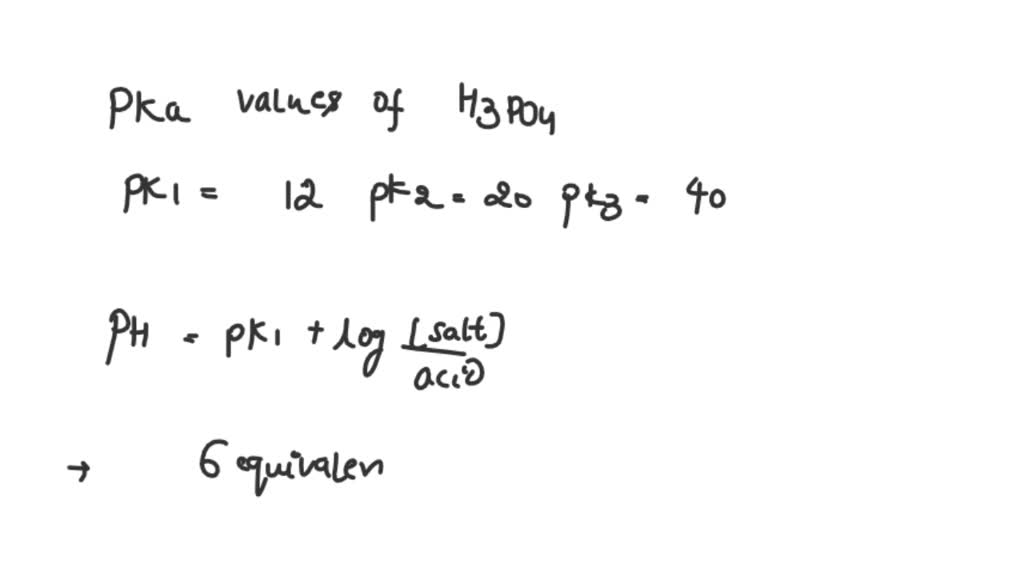 PKa values of H3PO4
PK1 = 12 pk2 = 20 pk3 = 40
PH = pK1 + log [salt]
acid
→ 6 equivalen